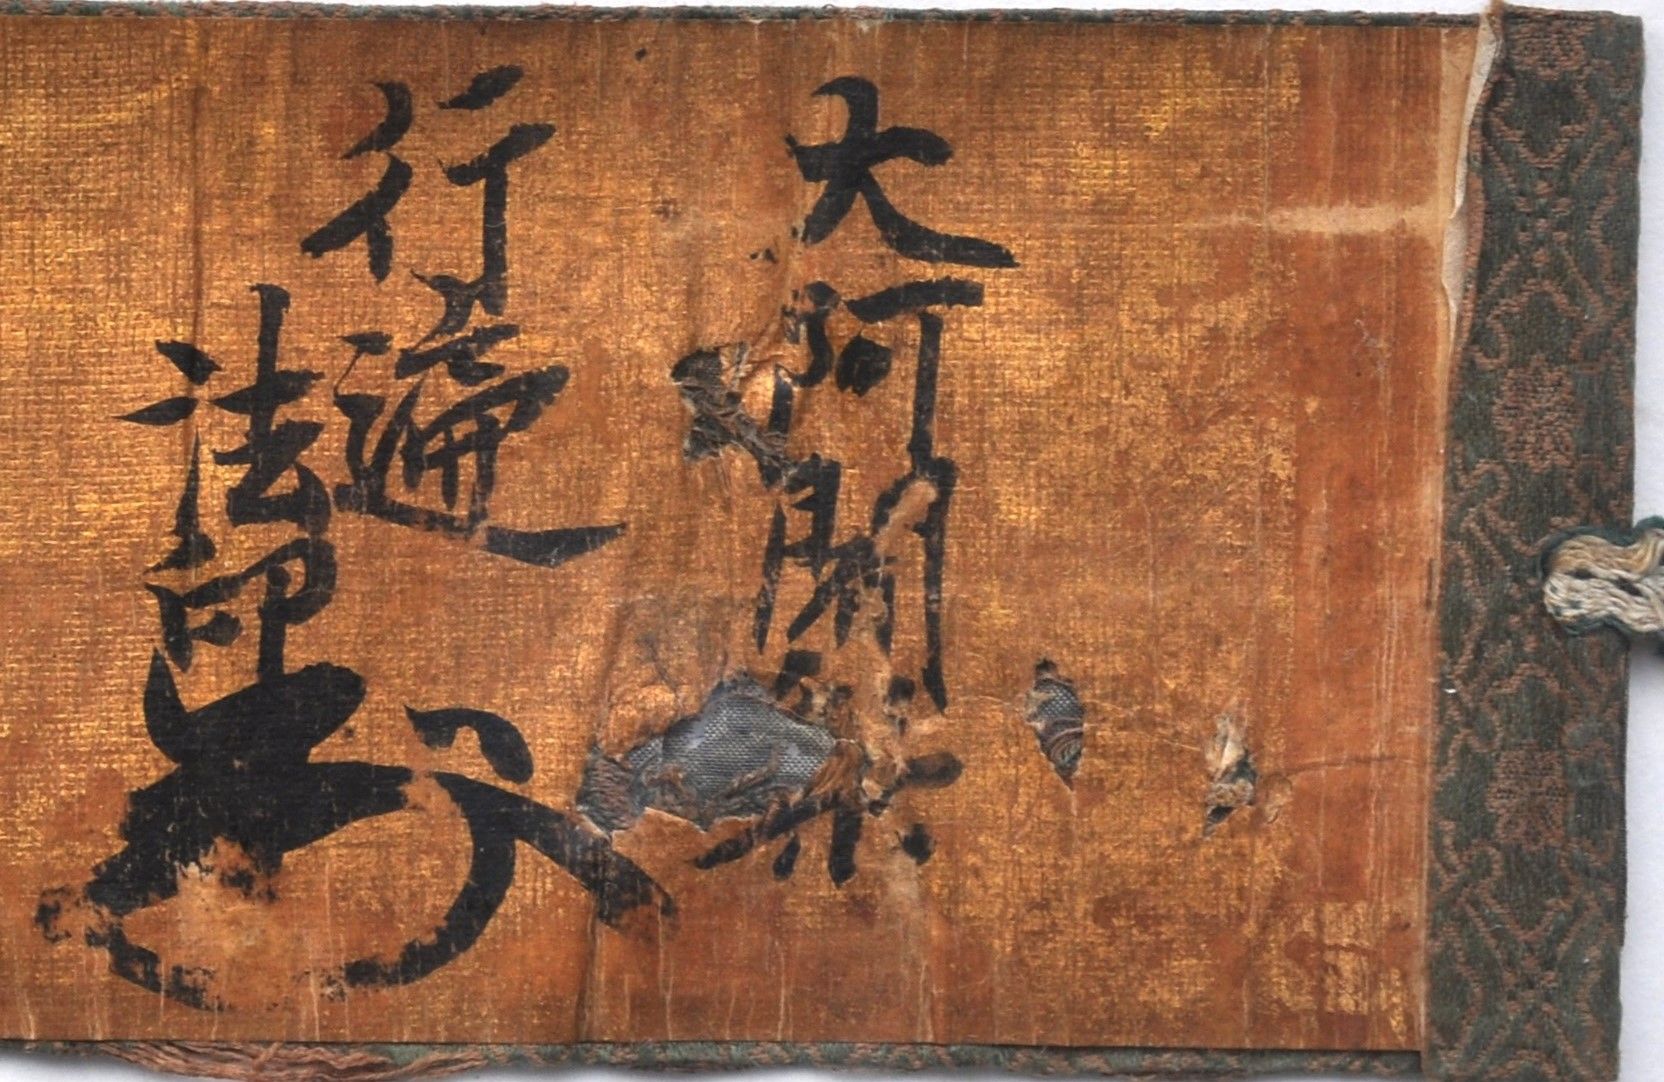 大阿闍梨
行遍
法印